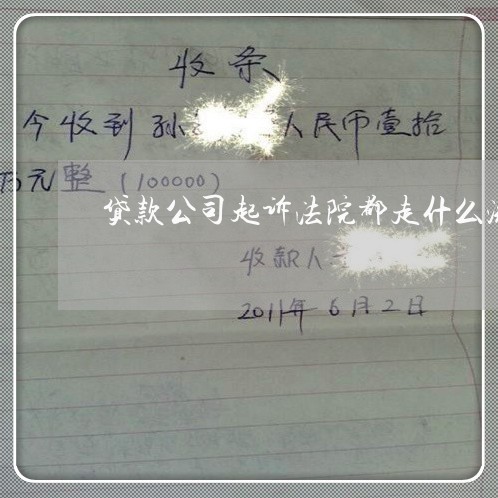 收条
今收到孙 人民币壹拾
万元整(100000)
贷款公司起诉法院都走什么
收款人
2011年6月2日